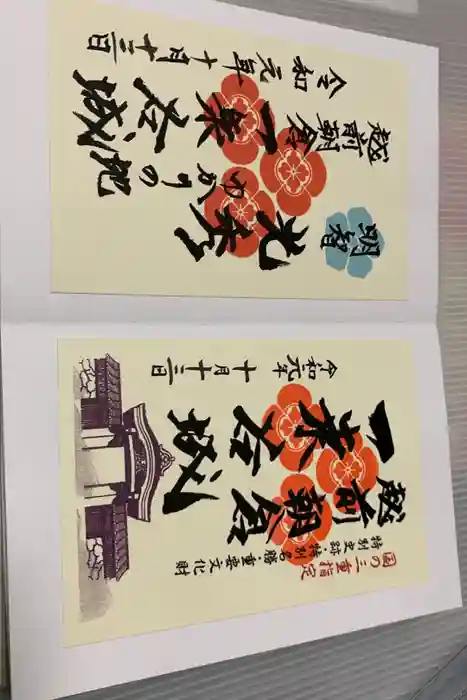 越前朝倉
一乗谷城
明智
光秀
ゆかりの地
令和元年十月十三日
国の三重指定
特別史跡・特別名勝・重要文化財
越前朝倉
一乗谷城
令和元年十月十三日